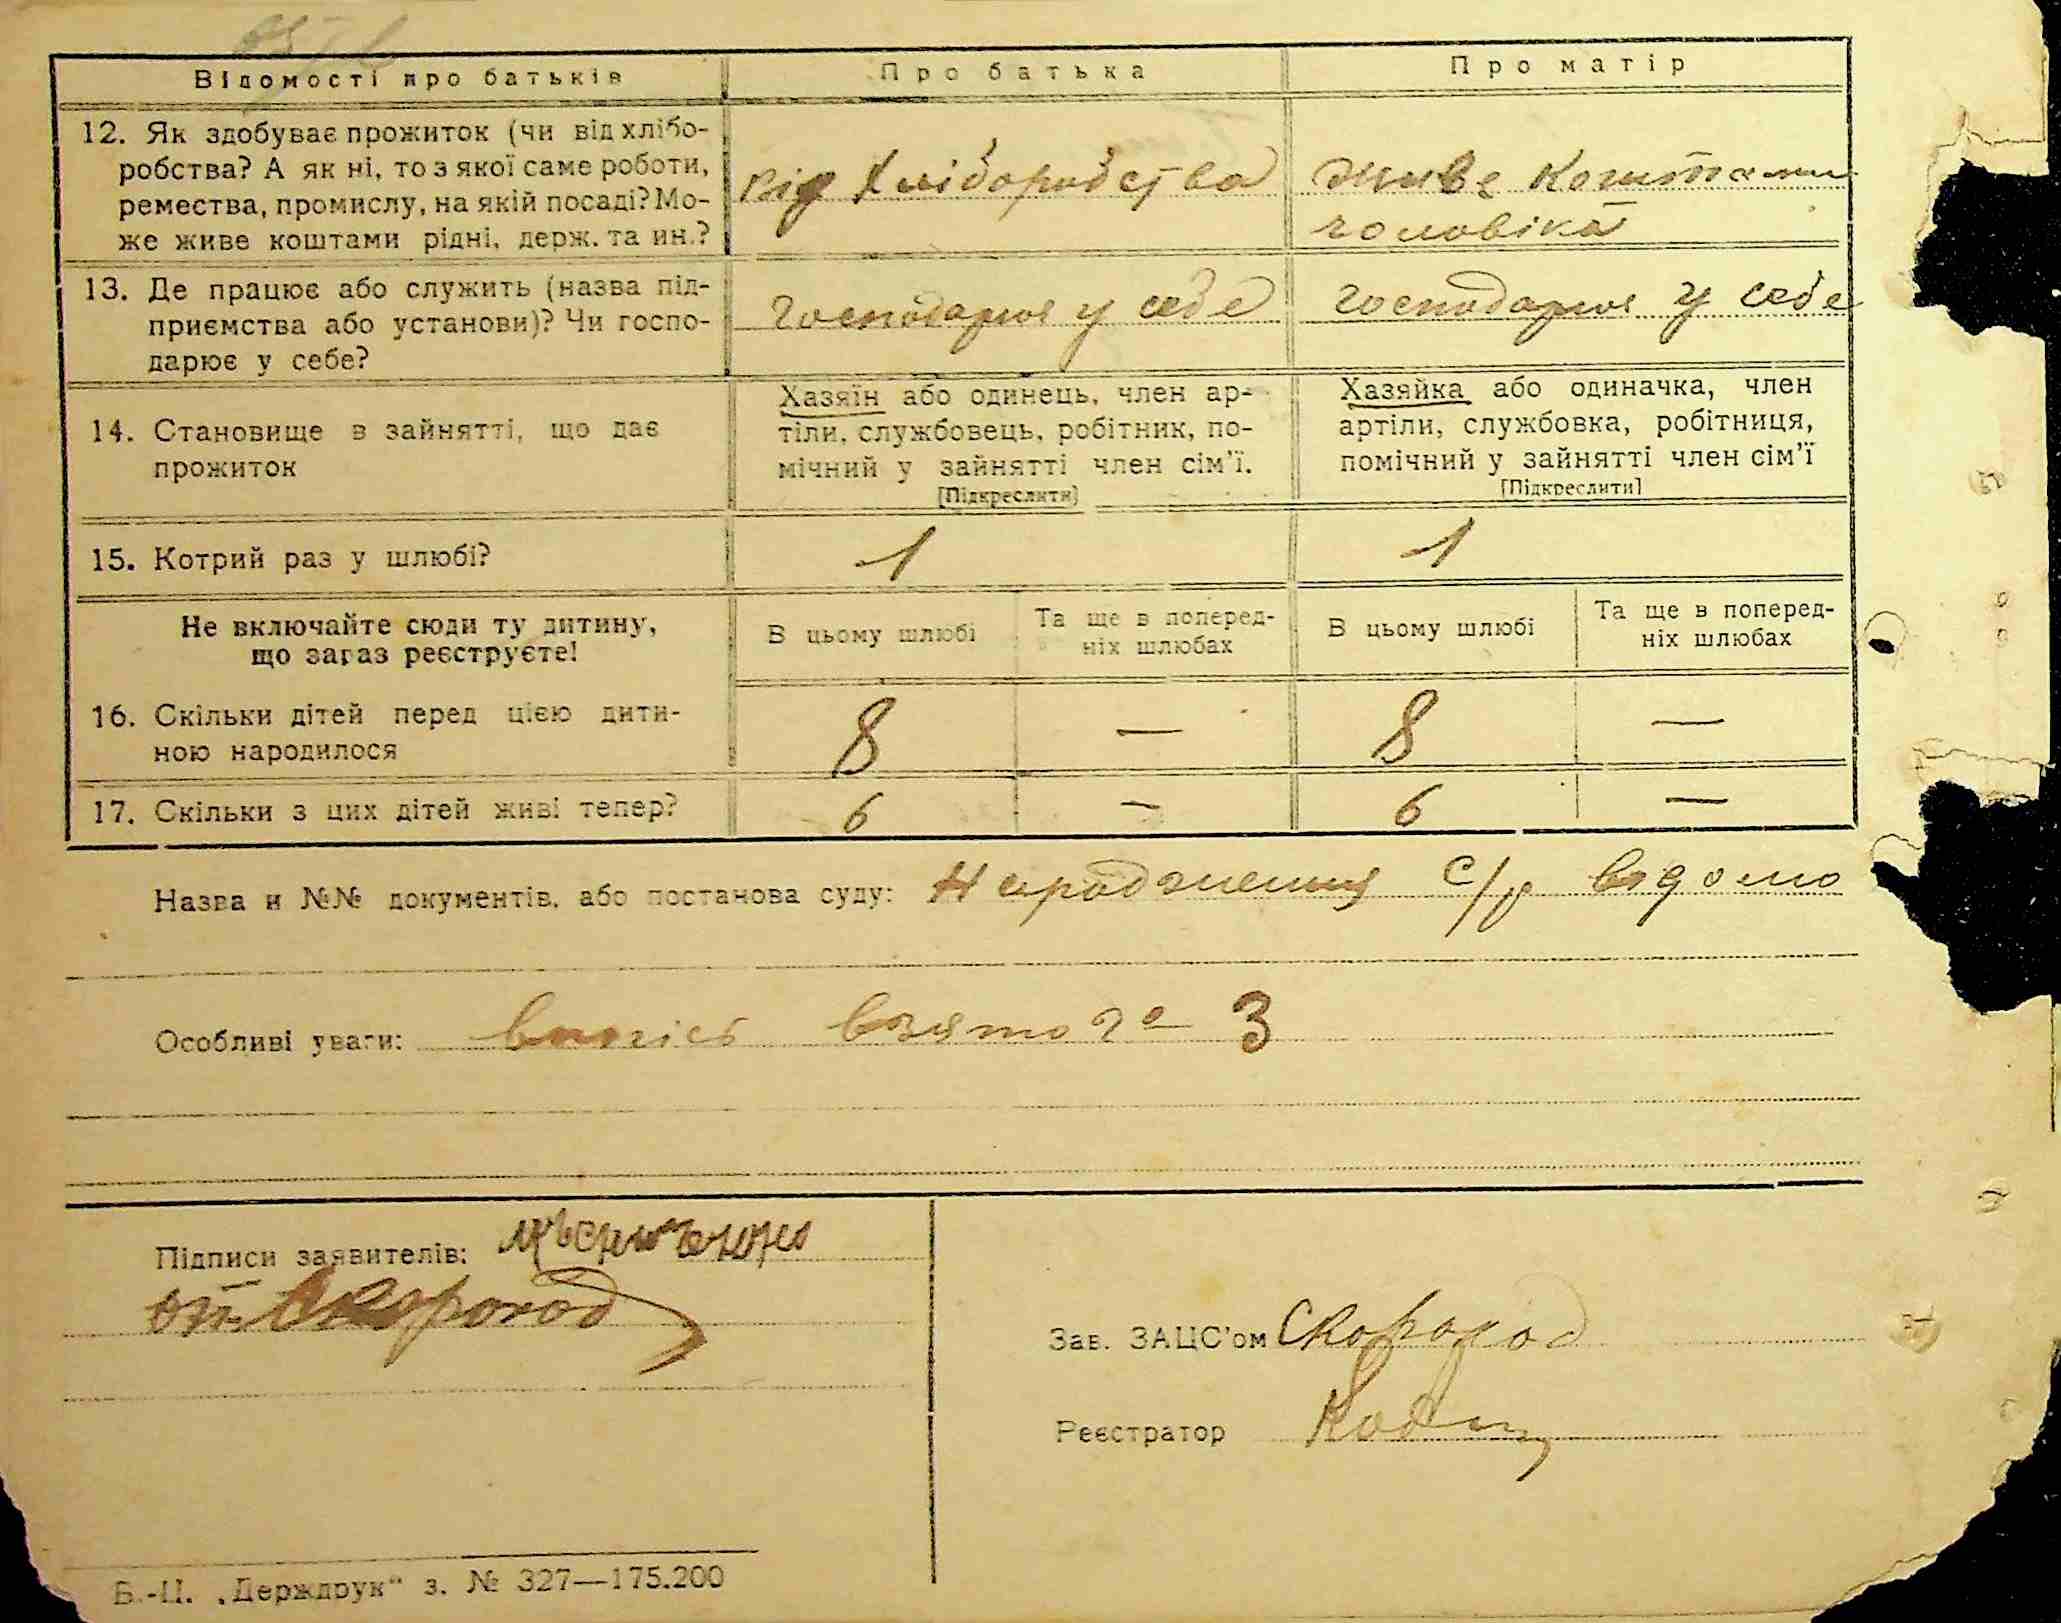 Відомості про батьків
Про батька
Про матір
12. Як здобуває прожиток (чи від хлібо-
робства? А як ні, то з якої саме роботи,
ремества, промислу, на якій посаді? Мо-
же живе коштами рідні, держ. та ин.?
від хліборобства
живе коштами
чоловіка
13. Де працює або служить (назва під-
приємства або установи)? Чи госпо-
дарює у себе?
господарює у себе
господарює у себе
14. Становище в зайнятті, що дає
прожиток
Хазяїн або одинець, член ар-
тіли, службовець, робітник, по-
мічний у зайнятті член сім’ї.
[Підкреслити]
Хазяйка або одиначка, член
артіли, службовка, робітниця,
помічний у зайнятті член сім’ї
[Підкреслити]
15. Котрий раз у шлюбі?
1
1
Не включайте сюди ту дитину,
що зараз реєструєте!
В цьому шлюбі
Та ще в поперед-
ніх шлюбах
В цьому шлюбі
Та ще в поперед-
ніх шлюбах
16. Скільки дітей перед цією дити-
ною народилося
8
—
8
—
17. Скільки з цих дітей живі тепер?
6
—
6
—
Назва и №№ документів, або постанова суду: Народження с/р відомо
Особливі уваги: взято 3
Підписи заявителів:
Скороход
Зав. ЗАЦС’ом Скороход
Реєстратор
Б.-Ц. „Держдрук“ з. № 327—175.200